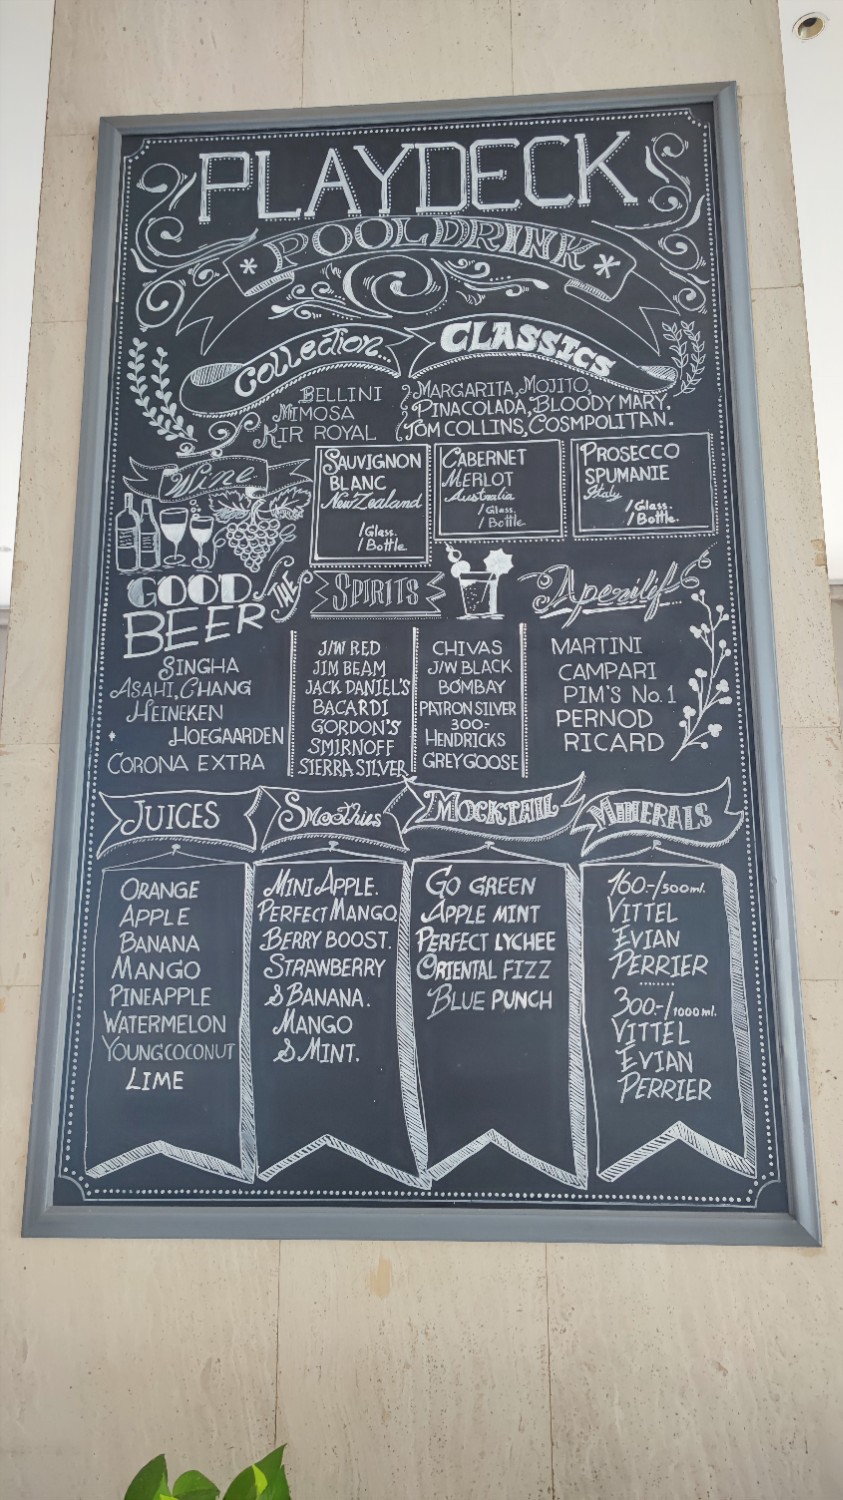 PLAYDECK
* POOL DRINK *
Collection...
BELLINI
MIMOSA
KIR ROYAL
CLASSICS
MARGARITA, MOJITO,
PINACOLADA, BLOODY MARY.
TOM COLLINS, COSMPOLITAN.
Wine
SAUVIGNON
BLANC
New Zealand
/Glass.
/Bottle.
CABERNET
MERLOT
Australia
/Glass.
/Bottle
PROSECCO
SPUMANIE
Italy
/Glass.
/Bottle.
GOOD
BEER
SINGHA
ASAHI, CHANG
HEINEKEN
HOEGAARDEN
CORONA EXTRA
THE
SPIRITS
J/W RED
JIM BEAM
JACK DANIEL'S
BACARDI
GORDON'S
SMIRNOFF
SIERRA SILVER
CHIVAS
J/W BLACK
BOMBAY
PATRON SILVER
300.-
HENDRICKS
GREY GOOSE
Aperitif
MARTINI
CAMPARI
PIM'S No.1
PERNOD
RICARD
JUICES
ORANGE
APPLE
BANANA
MANGO
PINEAPPLE
WATERMELON
YOUNGCOCONUT
LIME
Smoothies
MINI APPLE.
PERFECT MANGO.
BERRY BOOST.
STRAWBERRY
& BANANA.
MANGO
& MINT.
MOCKTAIL
GO GREEN
APPLE MINT
PERFECT LYCHEE
ORIENTAL FIZZ
BLUE PUNCH
MINERALS
160.-/500ml.
VITTEL
EVIAN
PERRIER
300.-/1000ml.
VITTEL
EVIAN
PERRIER